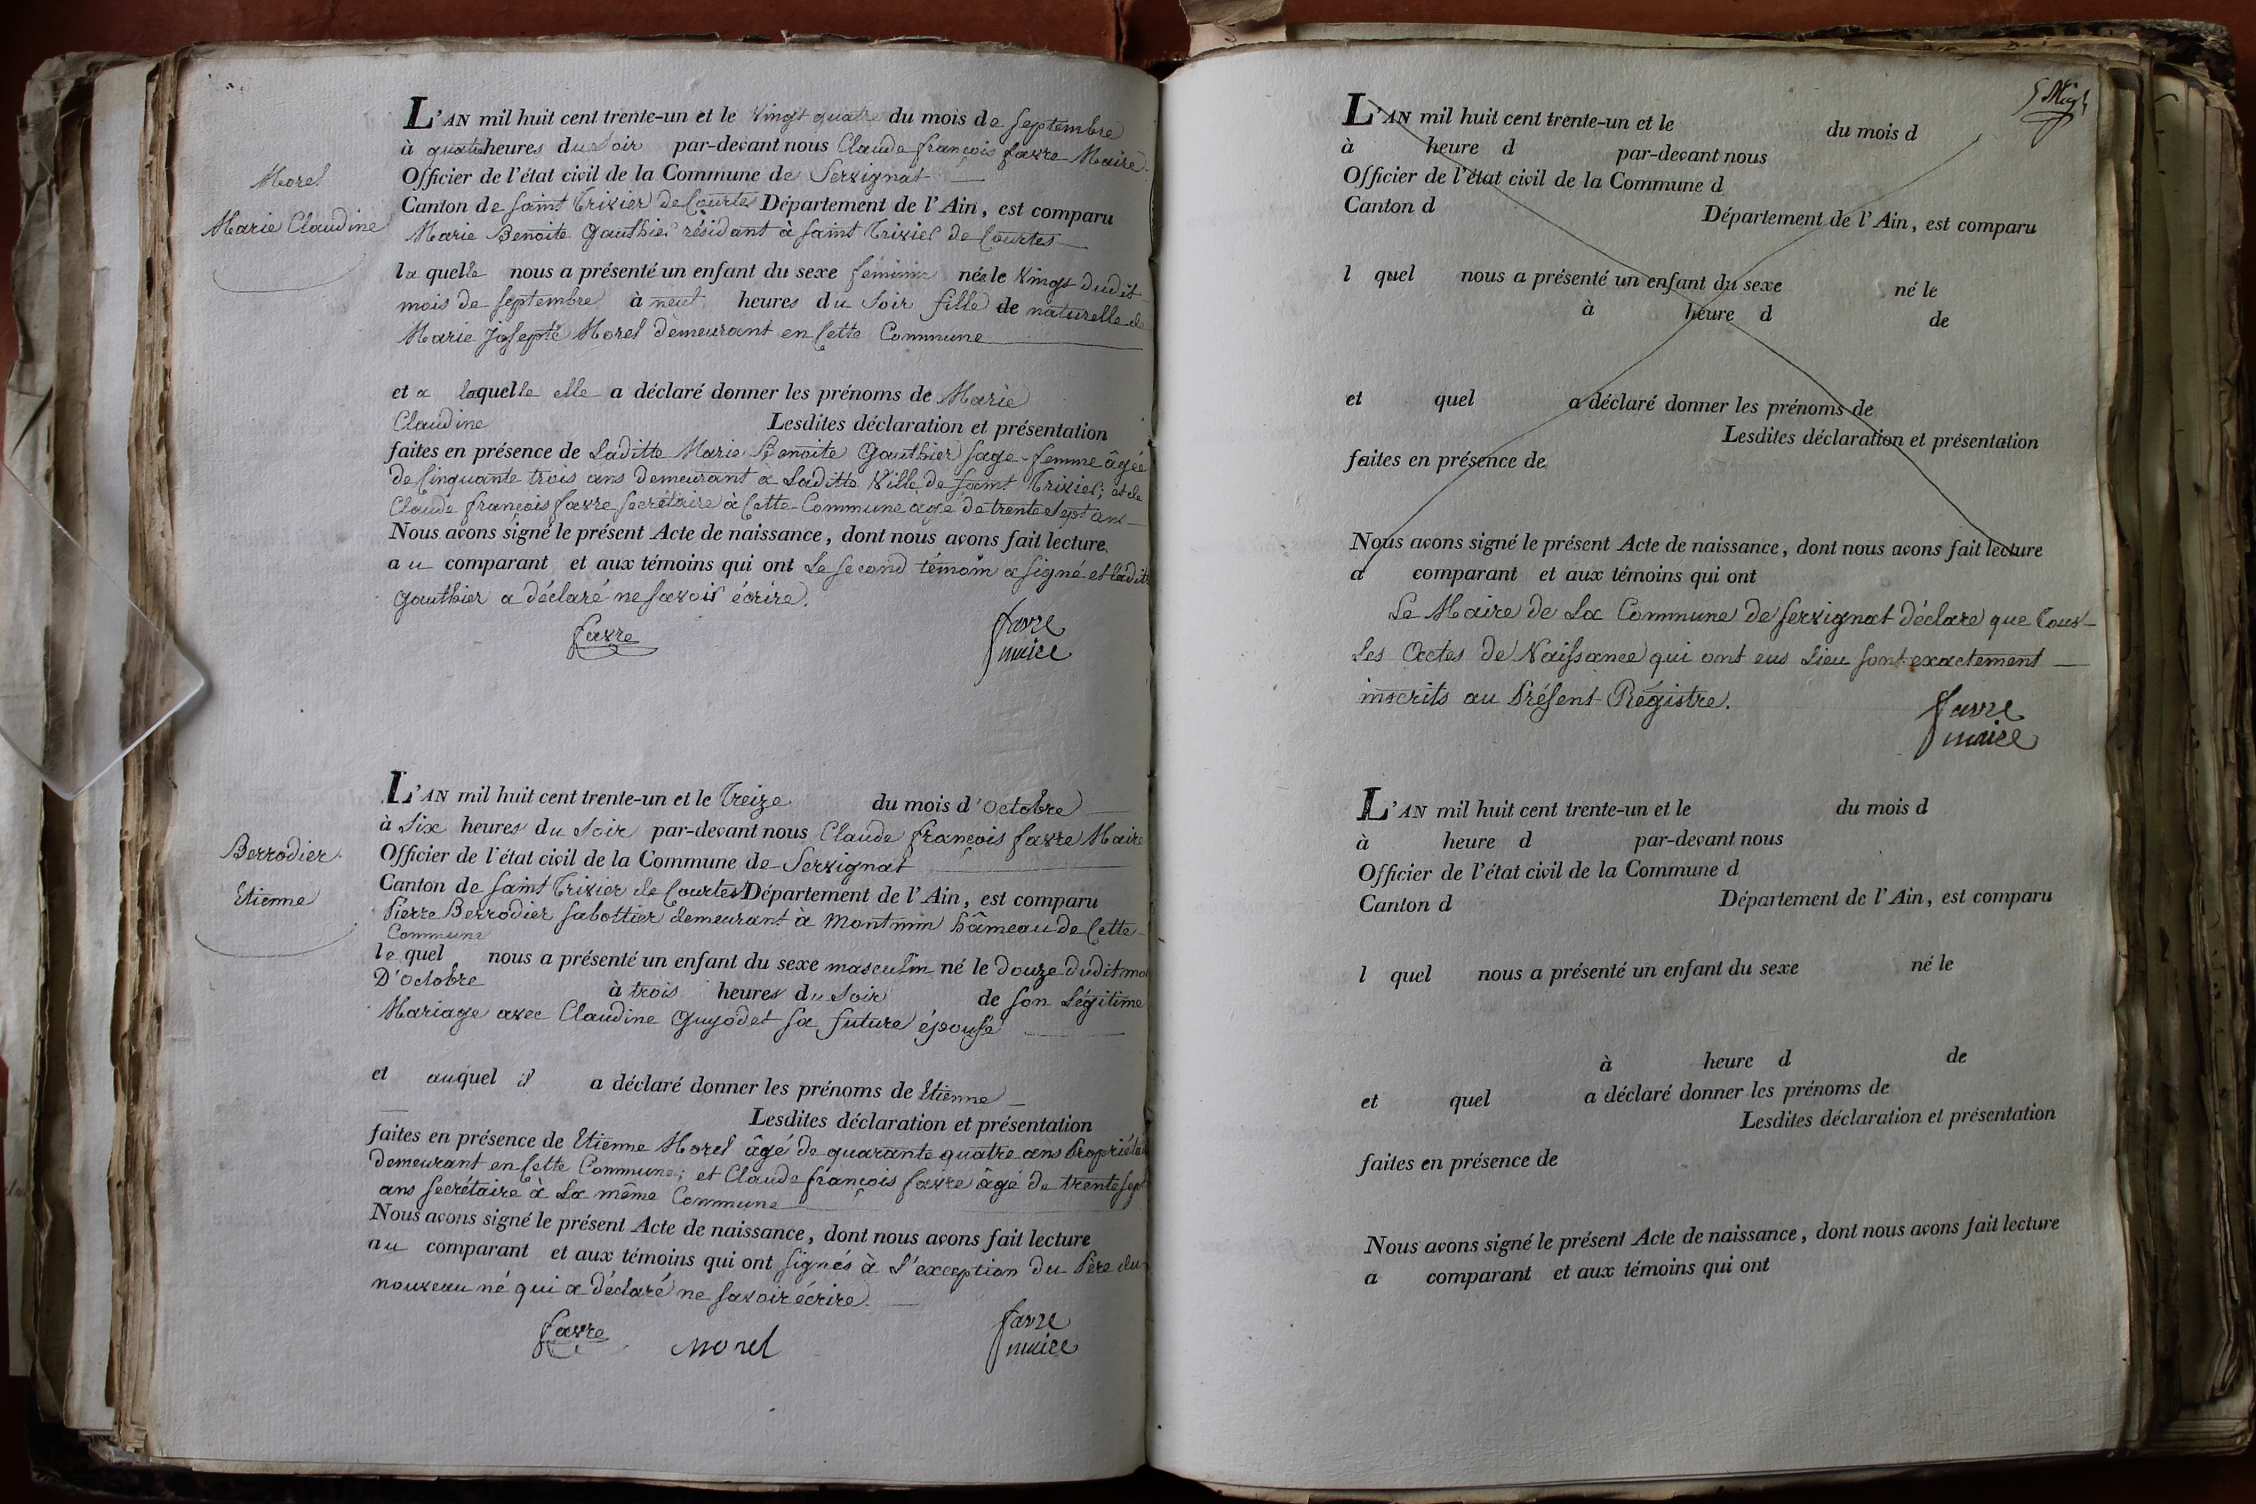 Morel
Marie Claudine
L'AN mil huit cent trente-un et le vingt quatre du mois de septembre
à quatre heures du soir par-devant nous Claude françois favre Maire
Officier de l'état civil de la Commune de Servignat
Canton de saint Trivier de Courtes Département de l'Ain, est comparu
Marie Benoite Gauthier résidant à saint Trivier de Courtes
la quelle nous a présenté un enfant du sexe féminin née le vingt dudit
mois de septembre à neuf heures du soir fille de naturelle de
Marie Josepte Morel demeurant en Cette Commune
et a laquelle elle a déclaré donner les prénoms de Marie
Claudine Lesdites déclaration et présentation
faites en présence de Laditte Marie Benoite Gauthier sage-femme âgée
de Cinquante trois ans demeurant à Laditte Ville de saint Trivier; et de
Claude françois favre secrétaire à Cette Commune âgé de trente sept ans
Nous avons signé le présent Acte de naissance, dont nous avons fait lecture
au comparant et aux témoins qui ont Le second témoin a signé et ladite
Gauthier a déclaré ne savoir écrire.
favre
favre
maire
Berrodier
Etienne
L'AN mil huit cent trente-un et le Treize du mois d'octobre
à Six heures du soir par-devant nous Claude françois favre Maire
Officier de l'état civil de la Commune de Servignat
Canton de saint Trivier de Courtes Département de l'Ain, est comparu
Pierre Berrodier sabottier demeurant à montmin hâmeau de Cette
Commune
le quel nous a présenté un enfant du sexe masculin né le douze dudit moi
D'octobre à trois heures du soir de son Légitime
Mariage avec Claudine Guyodet sa future épouse
et auquel il a déclaré donner les prénoms de Etienne
Lesdites déclaration et présentation
faites en présence de Etienne Morel âgé de quarante quatre ans Propriétai
demeurant en Cette Commune; et Claude françois favre âgé de trente sept
ans secrétaire à La même Commune
Nous avons signé le présent Acte de naissance, dont nous avons fait lecture
au comparant et aux témoins qui ont signés à L'exception du Père du
nouveau né qui a déclaré ne savoir écrire.
favre
morel
favre
maire
L'AN mil huit cent trente-un et le du mois d
à heure d par-devant nous
Officier de l'état civil de la Commune d
Canton d Département de l'Ain, est comparu
l quel nous a présenté un enfant du sexe né le
à heure d de
et quel a déclaré donner les prénoms de
Lesdites déclaration et présentation
faites en présence de
Nous avons signé le présent Acte de naissance, dont nous avons fait lecture
a comparant et aux témoins qui ont
Le Maire de La Commune de Servignat déclare que Tous
Les Actes de Naissance qui ont eus Lieu sont exactement
inscrits au Présent Régistre.
favre
maire
L'AN mil huit cent trente-un et le du mois d
à heure d par-devant nous
Officier de l'état civil de la Commune d
Canton d Département de l'Ain, est comparu
l quel nous a présenté un enfant du sexe né le
à heure d de
et quel a déclaré donner les prénoms de
Lesdites déclaration et présentation
faites en présence de
Nous avons signé le présent Acte de naissance, dont nous avons fait lecture
a comparant et aux témoins qui ont